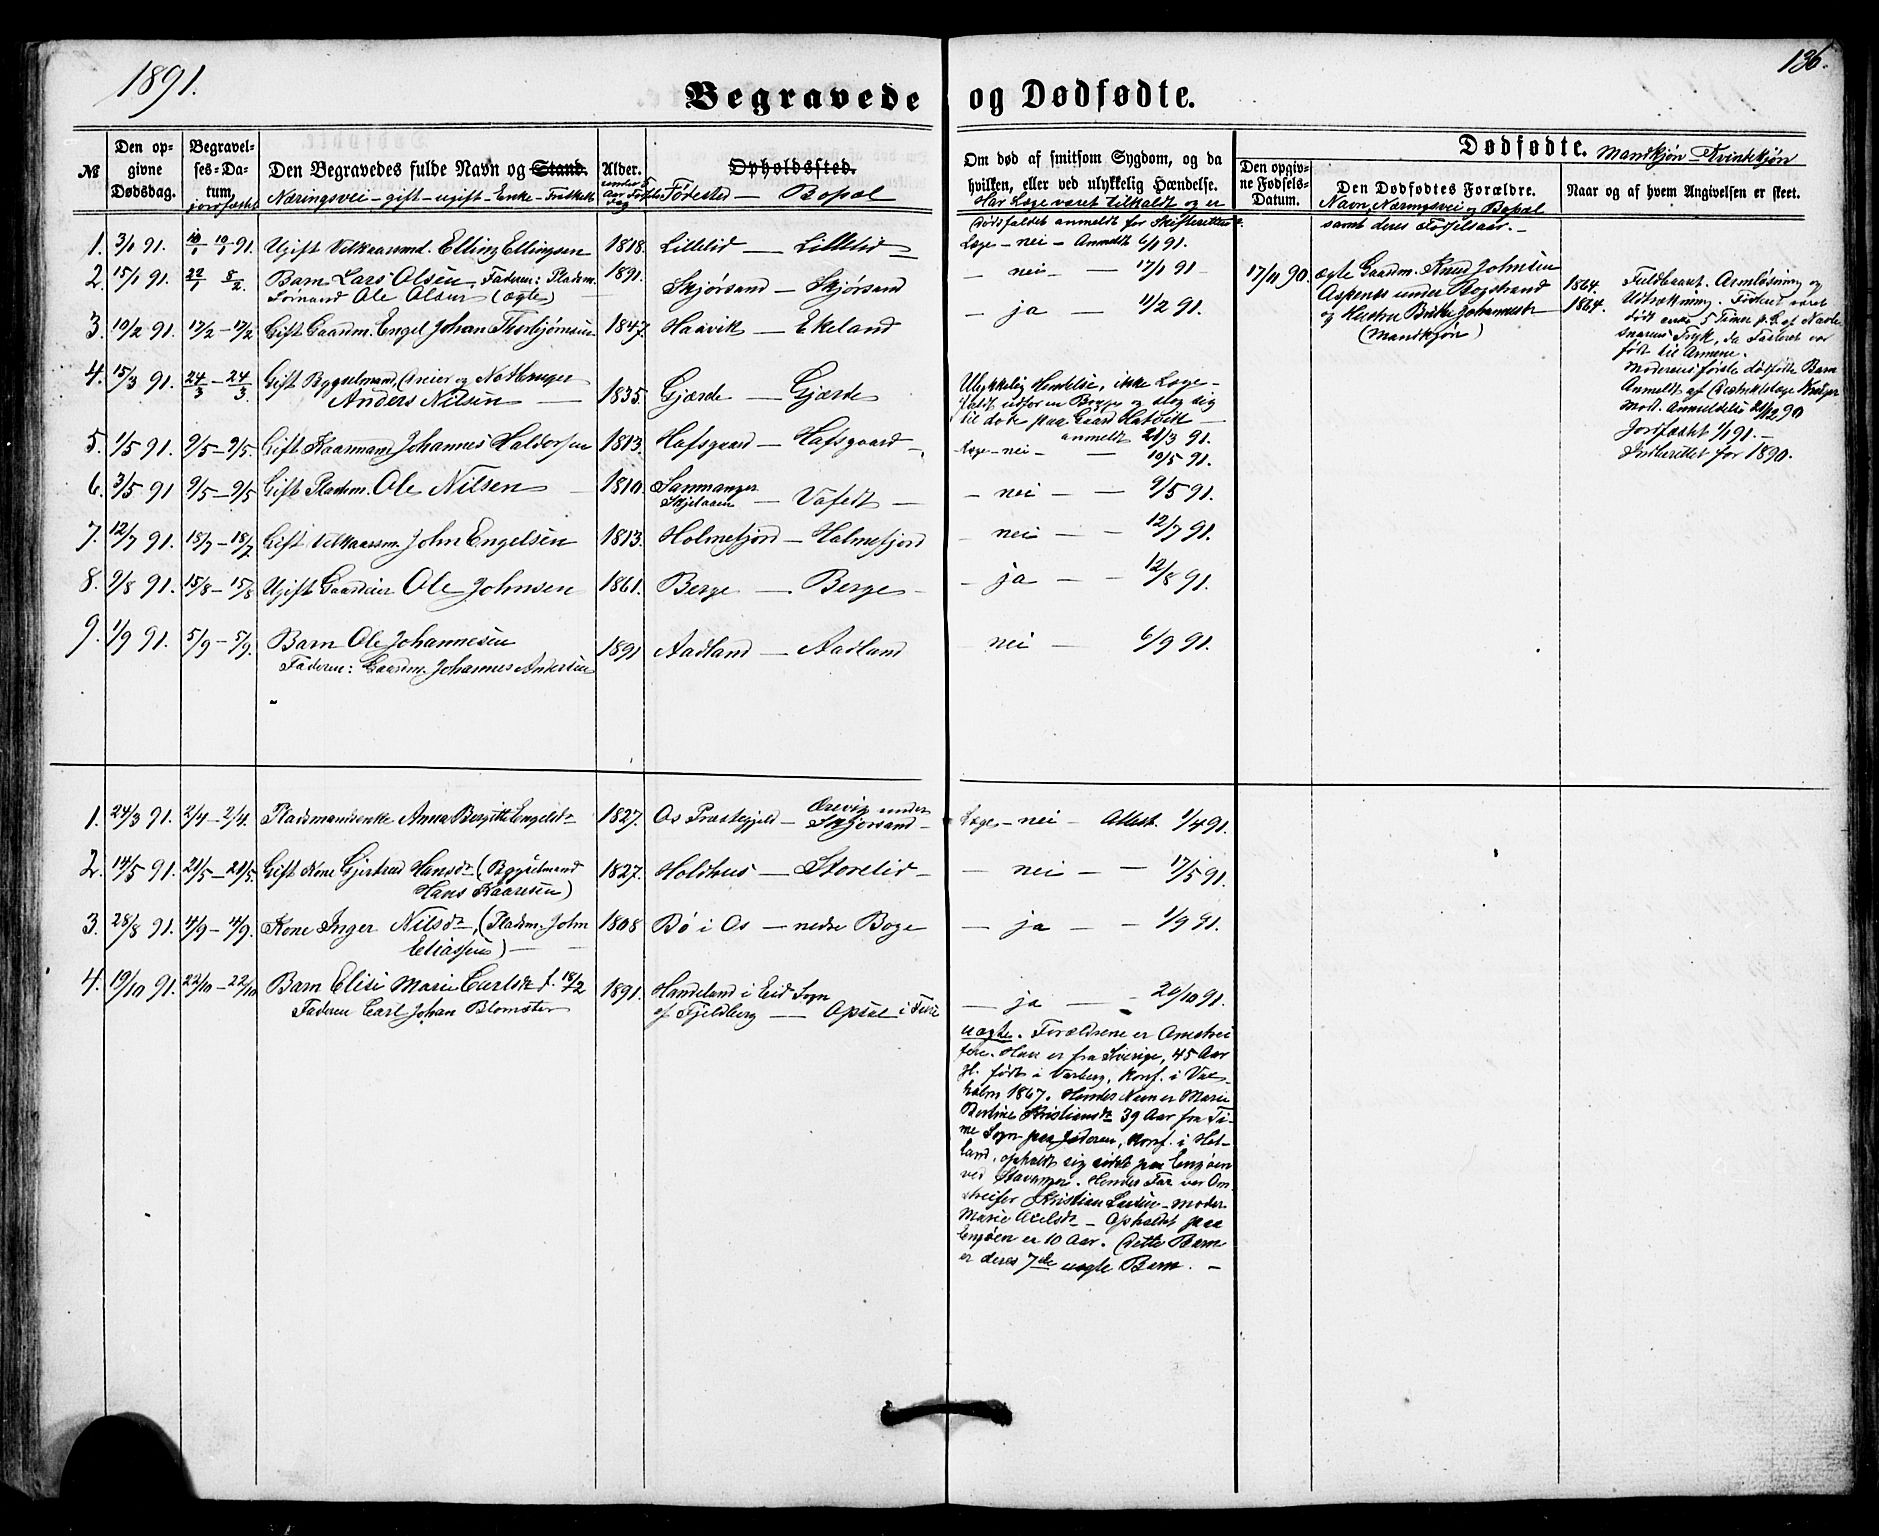 1891.
136.
Begravede og Dødfødte.
№
Den opgivne Dødsdag.
Begravelses-Datum, jordfæstet
Den Begravedes fulde Navn og Stand.
Næringsvei - gift - ugift - Enke - Fraskilt
Alder.
Fødested — Opholdssted. Bopæl
Om død af smitsom Sygdom, og da
hvilken, eller ved ulykkelig Hændelse.
Har Læge været tilkaldt og er
Dødsfaldet anmeldt for Skifteretten.
Dødfødte. Mandkjøn - Kvindkjøn
Den opgivne Fødsels-Datum.
Den Dødfødtes Forældre.
Navn, Næringsvei og Bopæl
samt deres Fødselsaar. -
Naar og af hvem Angivelsen er skeet.
1. 3/1 91. 10/1 10/1 91. Ugift Vilkaarsmd. Elling Ellingsen 1818. Lillelid — Lillelid — Læge - nei - Anmeldt 6/1 91.
2. 15/1 91. 22/1 8/2 Barn Lars Olsen, Faderen: Pladsm. 1891. Skjørsand — Skjørsand — nei — 17/1 91 -
Ole Olsen (ægte)
3. 10/2 91. 17/2 - 17/2 Gift Gaardm. Engel Johan Thorbjørnsen 1847. Haavik — Ekeland — ja — 11/2 91.
4. 15/3 91. 24/3 - 24/3 Gift Bygselmand, Sneier og Notbruger
Anders Nilsen — 1835. Gjerde — Gjerde
Ulykkelig Hendelse, ikke Læge -
Faldt udfor en Brygge og slog sig
til døde paa Gaard Hatvik —
anmeldt 21/3 91.
5. 1/5 91. 9/5 - 9/5. Gift Kaarmand Johannes Haldorsen 1813. Hafsgaard — Hafsgaard -, Læge - nei - — 10/5 91.
6. 3/5 91 9/5 - 9/5 Gift Pladsm. Ole Nilsen — 1810. Samnanger — Vafedt — - nei - — 9/5 91.
7. 12/7 91. 18/7 - 18/7 Gift Vilkaarsm. John Engelsen 1813. Holmefjord — Holmefjord - nei - — 12/7 91.
8. 9/8 91. 15/8 - 15/8 Ugift Gaardeier Ole Johnsen 1861. Berge — Berge — - ja — - 12/8 91.
9. 1/9 91. 5/9 - 5/9. Barn Ole Johannesen 1891 Aadland — Aadland — nei — 6/9 91.
Faderen: Gaardm. Johannes Andersen
17/11 90. ægte Gaardm. Knud Johnsen 1864.
Aspenes under Rogstrand
og Hustru Brithe Johannesdr 1864.
(Mandkjøn)
Fuldbaaret. Armløsning og
Udtrækning. Fosteret været
dødt endnu 5 Timer p. G. af Navle
snorens Tryk, da Fosteret var
født til Armene.
Moderens første dødfødte Barn
Anmeldt af Distriktslæge Krüger
Mod. Anmeldelse 21/12 90
Jordfæstet 1/1 91. -
Indberettet for 1890.
1. 24/3 91. 2/4 - 2/4. Pladsmandsenke Anna Bergitte Engelsdr 1827. Os Præstegjeld — Ørevig under
Skjørsand - Læge - nei - Attest. 1/4 91.
2. 14/5 91. 21/5 - 21/5. Gift Kone Gjertrud Hansdr (Bygselmand 1827. Holdhus — Storelid - - nei - — 17/5 91.
Hans Kaaresen)
3. 28/8 91. 4/9 - 4/9. Kone Inger Nilsdr, (Pladsm. John 1808 Bø i Os — nedre Boge - ja — - 1/9 91.
Eliassen) —
4. 19/10 91. 22/10 - 22/10 Barn Elise Marie Carlsdr f. 18/2 1891. Handeland i Eid Sogn
Faderen Carl Johan Blomster af Fjeldberg — Opsal i Fusa — ja — - 20/10 91.
uægte. Forældrene er Omstrei
fere. Han er fra Sverige, 45 Aar
Gl. født i Varberg, Konf. i Vax-
holm 1867. Hendes Navn er Marie
Bertine Kristiansdr 39 Aar fra Ti-
me Sogn paa Jæderen, Konf. i Het-
land, opholdt sig sidst paa Engøen
ved Stavanger. Hendes Far var Om
streifer Kristian Larsen - Moder
Marie Axelsdr - Opholdet paa
Engøen er 10 Aar. Dette Barn
er deres 7de uægte Barn. -